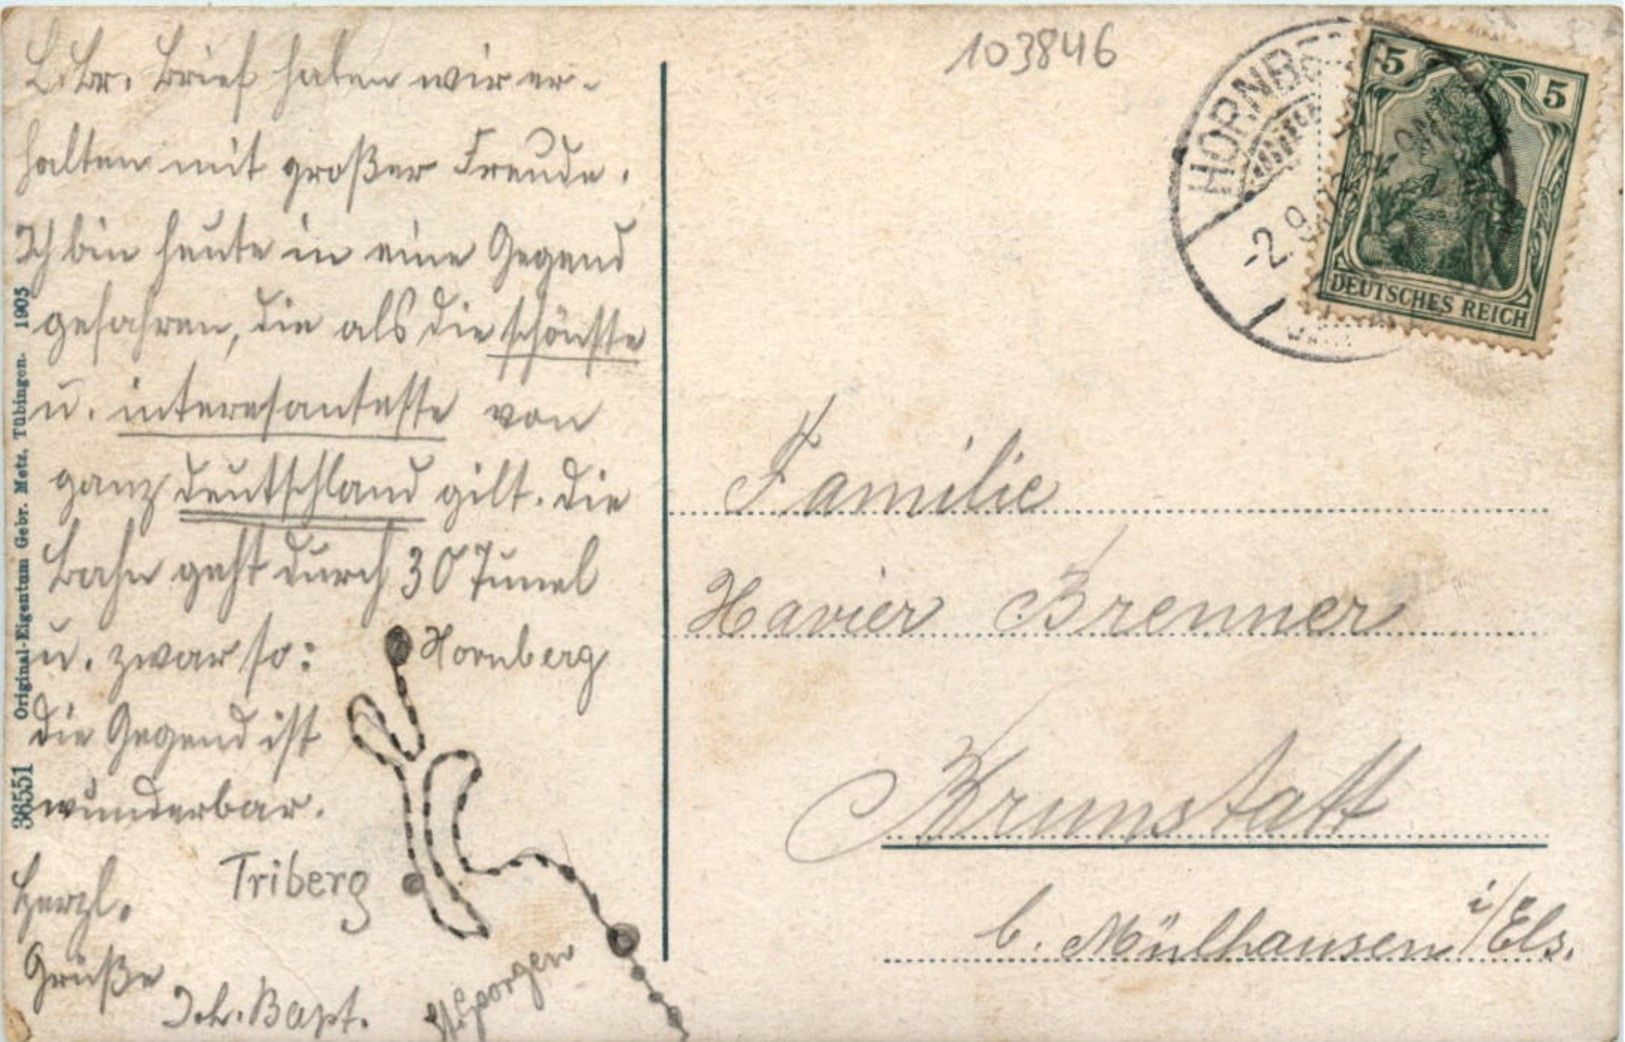 L. Br. Brief haben wir er-
halten mit großer Freude.
Ich bin heute in eine Gegend
gefahren, die als die schönste
u. interesanteste von
ganz deutschland gilt. die
Bahn geht durch 30 Tunel
u. zwar so:
Hornberg
die Gegend ist
wunderbar.
Triberg
St. Georgen
Herzl.
Grüße
Joh. Bapt.
36551 Original-Eigentum Gebr. Metz, Tübingen. 1905
103846
HORNBE
-2.9.
5 5
DEUTSCHES REICH
Familie
Xavier Brenner
Brunstatt
b. Mülhausen i/Els.